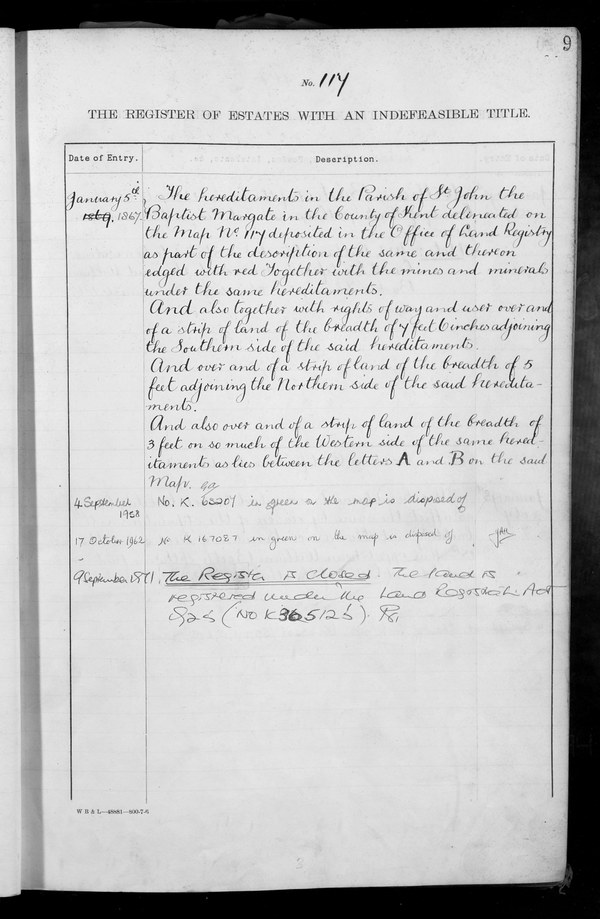 9
No. 117
THE REGISTER OF ESTATES WITH AN INDEFEASIBLE TITLE.
Date of Entry. Description.
January 5th, The hereditaments in the Parish of St John the
1869. 1867. Baptist Margate in the County of Kent delineated on
the Map No 117 deposited in the Office of Land Registry
as part of the description of the same and thereon
edged with red Together with the mines and minerals
under the same hereditaments.
And also together with rights of way and user over and
of a strip of land of the breadth of 7 feet 6 inches adjoining
the Southern side of the said hereditaments.
And over and of a strip of land of the breadth of 5
feet adjoining the Northern side of the said heredita-
ments.
And also over and of a strip of land of the breadth of
3 feet on so much of the Western side of the same hered-
itaments as lies between the letters A and B on the said
Map.
4 September No. K. 63207 in green on the map is disposed of
1958
17 October 1962 No K 167087 in green on the map is disposed of
9 September 1971. The Register is closed. The land is
registered under the Land Registration Act
1925 (No K365125).
W B & L—48881—800-7-6